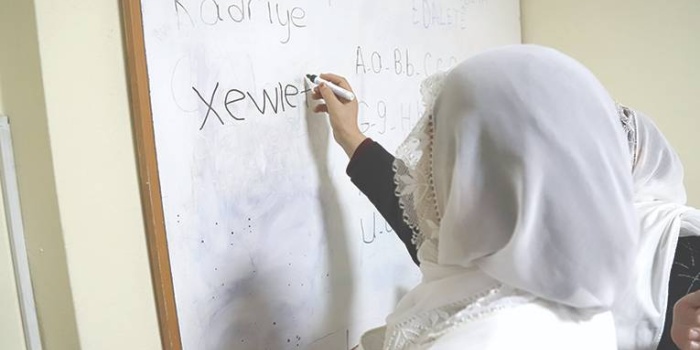 Kadriye
EDALETE
A.a.B.b.C.c
Xewlet
G.g.H
U.u